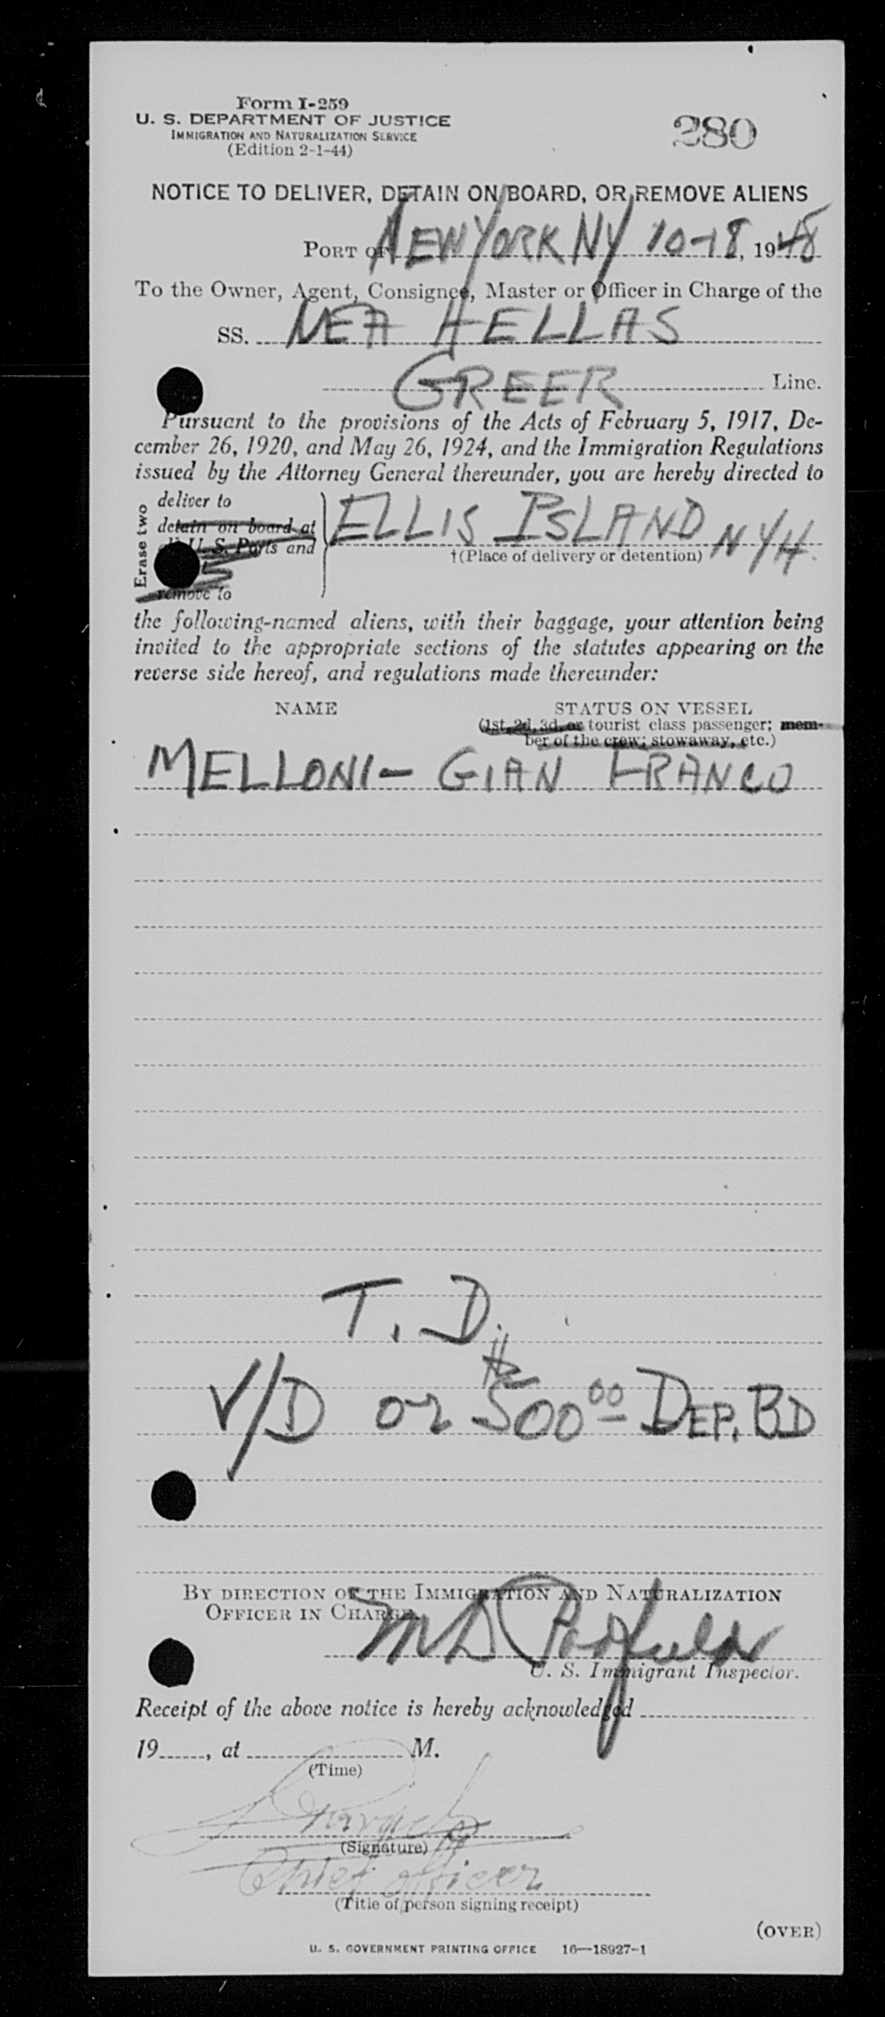 Form I-259
U. S. DEPARTMENT OF JUSTICE
IMMIGRATION AND NATURALIZATION SERVICE
(Edition 2-1-44)
280
NOTICE TO DELIVER, DETAIN ON BOARD, OR REMOVE ALIENS
PORT OF NEW YORK NY 10-18, 1948
To the Owner, Agent, Consignee, Master or Officer in Charge of the
SS. NEA HELLAS
GREER Line.
Pursuant to the provisions of the Acts of February 5, 1917, De-
cember 26, 1920, and May 26, 1924, and the Immigration Regulations
issued by the Attorney General thereunder, you are hereby directed to
Erase two
deliver to
detain on board at
all U. S. Ports and
remove to
ELLIS ISLAND NYH.
†(Place of delivery or detention)
the following-named aliens, with their baggage, your attention being
invited to the appropriate sections of the statutes appearing on the
reverse side hereof, and regulations made thereunder:
NAME STATUS ON VESSEL
(1st, 2d, 3d, or tourist class passenger; mem-
ber of the crew; stowaway, etc.)
MELLONI - GIAN FRANCO
T. D.
V/D or $500.00 DEP. BD
BY DIRECTION OF THE IMMIGRATION AND NATURALIZATION
OFFICER IN CHARGE
M D Padfield
U. S. Immigrant Inspector.
Receipt of the above notice is hereby acknowledged
19____, at ____ M.
(Time)
(Signature)
Chief officer
(Title of person signing receipt)
(OVER)
U. S. GOVERNMENT PRINTING OFFICE 16—18927-1